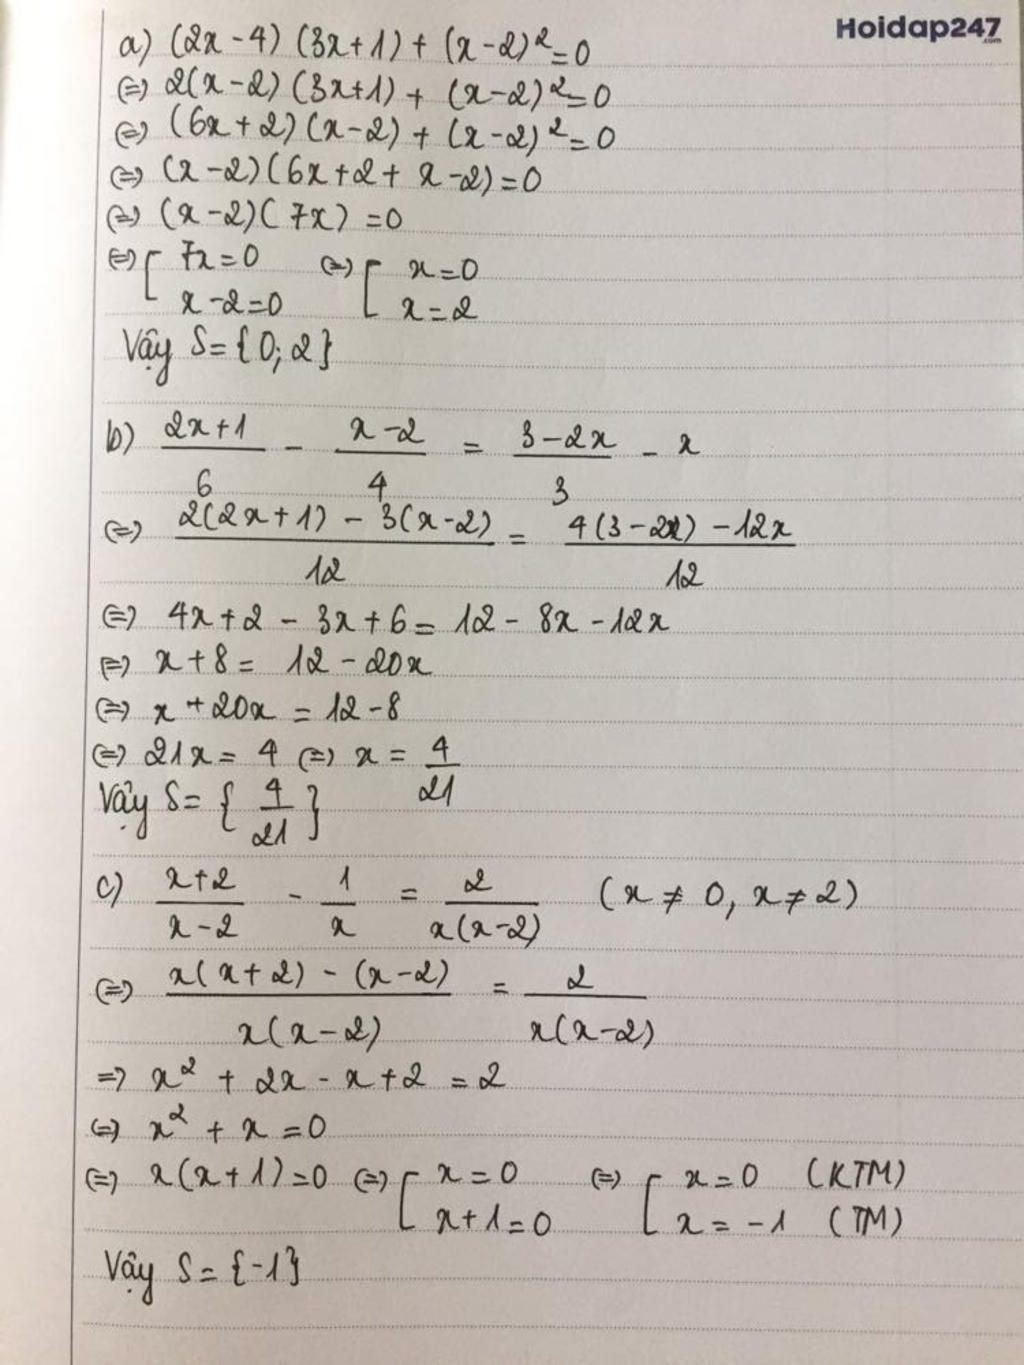 Hoidap247
.com
a) (2x-4) (3x+1) + (x-2)² = 0
(=) 2(x-2) (3x+1) + (x-2)² = 0
(=) (6x+2) (x-2) + (x-2)² = 0
(=) (x-2)(6x+2+x-2) = 0
(=) (x-2)(7x) = 0
(=) [ 7x=0 (=) [ x=0
x-2=0 x=2
Vậy S={0;2}
b) (2x+1)/6 - (x-2)/4 = (3-2x)/3 - x
(=) (2(2x+1) - 3(x-2))/12 = (4(3-2x) - 12x)/12
(=) 4x+2 - 3x+6 = 12 - 8x - 12x
(=) x+8 = 12 - 20x
(=) x + 20x = 12-8
(=) 21x = 4 (=) x = 4/21
Vậy S= { 4/21 }
c) (x+2)/(x-2) - 1/x = 2/(x(x-2)) (x ≠ 0, x ≠ 2)
(=) (x(x+2) - (x-2))/(x(x-2)) = 2/(x(x-2))
=> x² + 2x - x + 2 = 2
(=) x² + x = 0
(=) x(x+1)=0 (=) [ x=0 (=) [ x=0 (KTM)
x+1=0 x=-1 (TM)
Vậy S={-1}